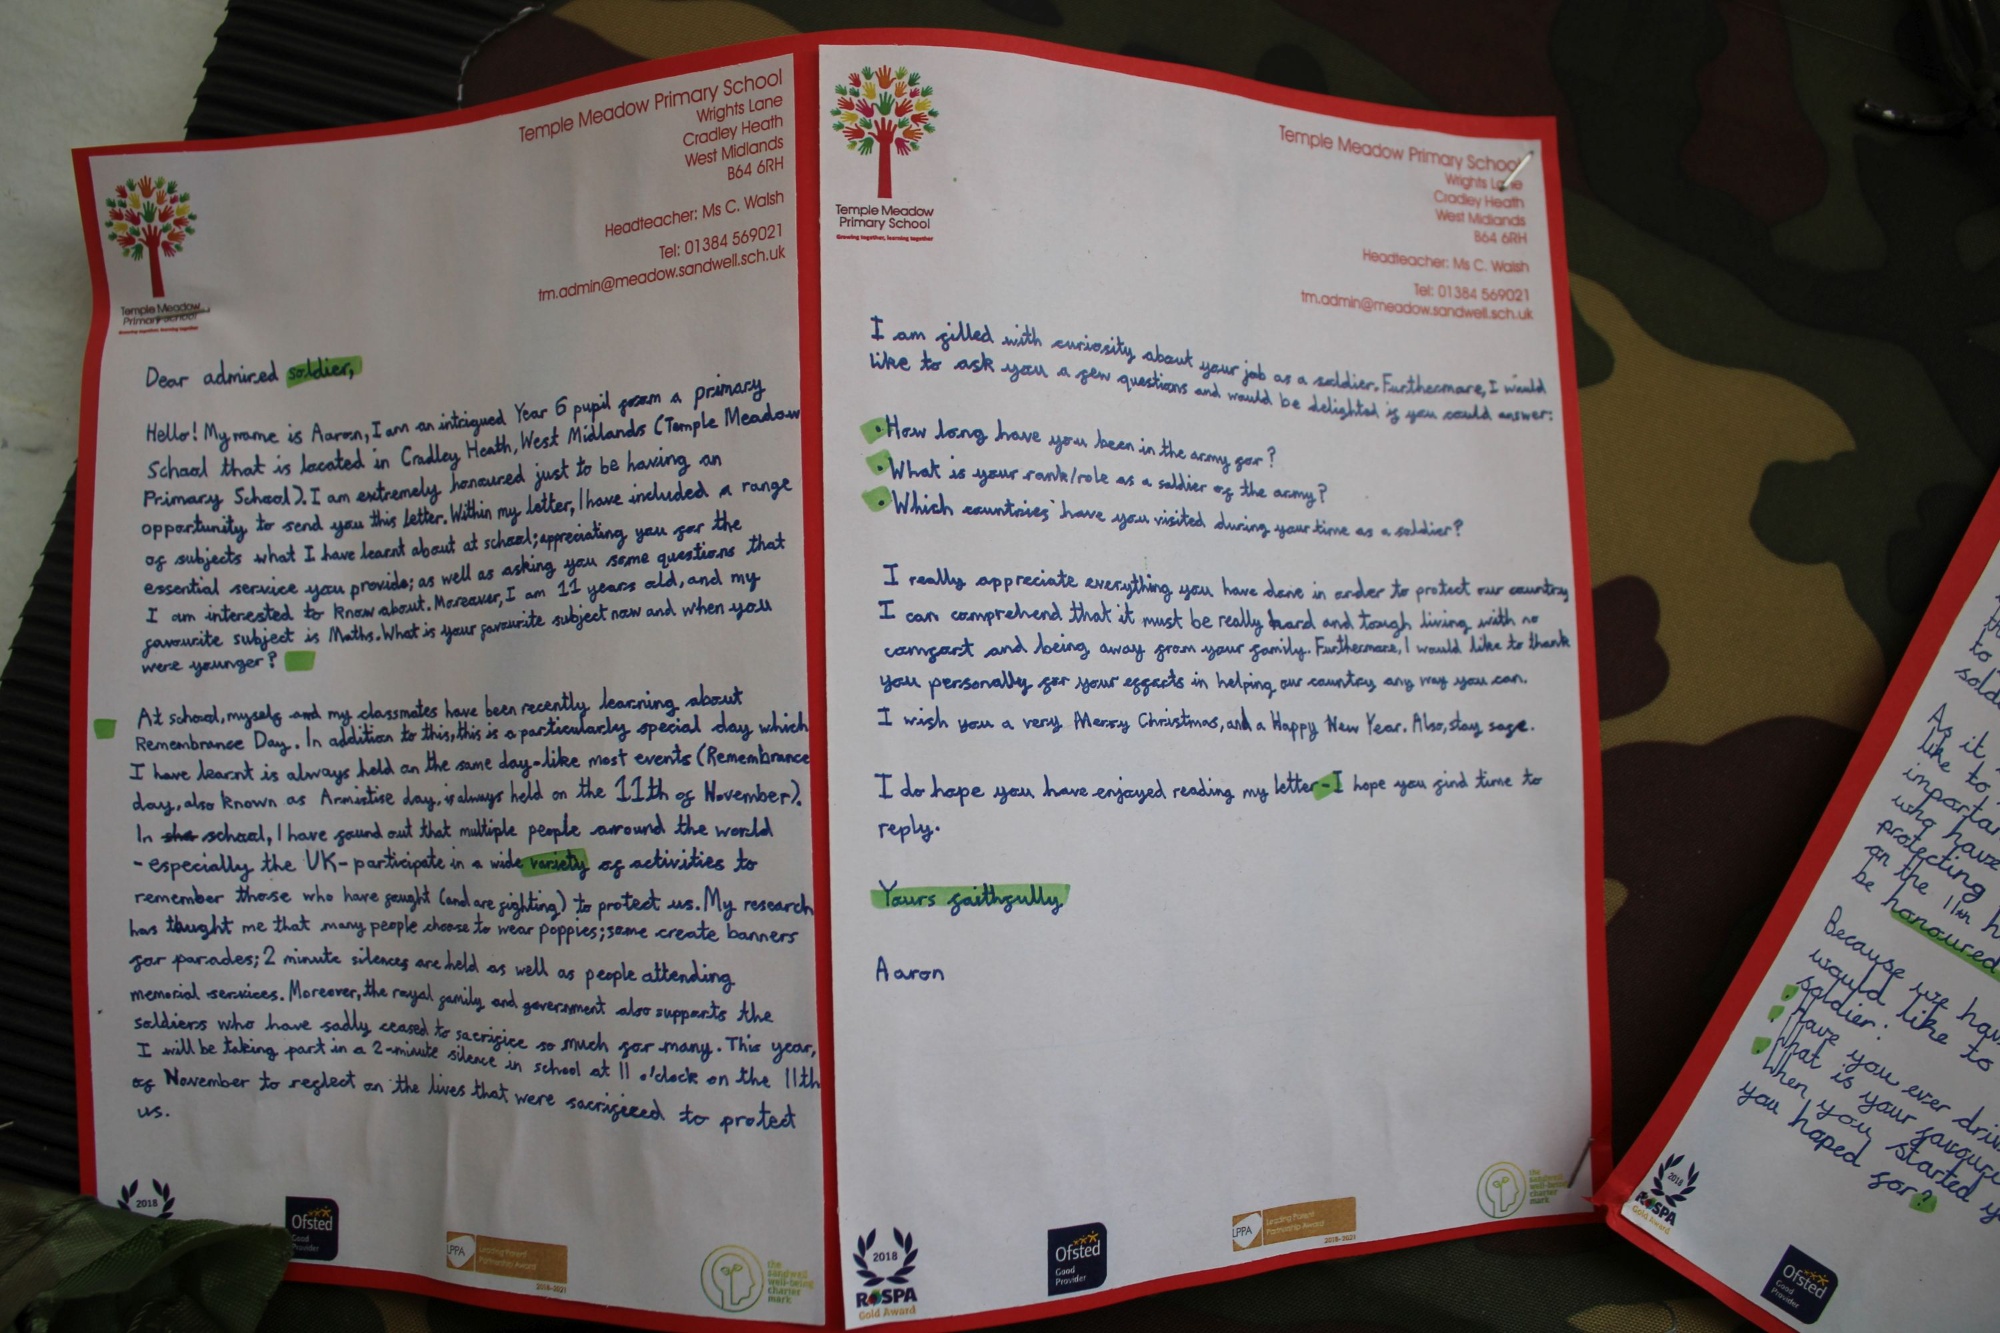 Temple Meadow Primary School
Wrights Lane
Cradley Heath
West Midlands
B64 6RH
Headteacher: Ms C. Walsh
Tel: 01384 569021
tm.admin@meadow.sandwell.sch.uk
Temple Meadow
Primary School
Growing together, learning together
Dear admired soldier,
Hello! My name is Aaron, I am an intrigued Year 6 pupil from a primary
School that is located in Cradley Heath, West Midlands (Temple Meadow
Primary School). I am extremely honoured just to be having an
opportunity to send you this letter. Within my letter, I have included a range
of subjects what I have learnt about at school; appreciating you for the
essential service you provide; as well as asking you some questions that
I am interested to know about. Moreover, I am 11 years old, and my
favourite subject is Maths. What is your favourite subject now and when you
were younger?
At school, myself and my classmates have been recently learning about
Remembrance Day. In addition to this, this is a particularly special day which
I have learnt is always held on the same day-like most events (Remembrance
day, also known as Armistise day, is always held on the 11th of November).
In school, I have found out that multiple people around the world
-especially the UK- participate in a wide variety of activities to
remember those who have fought (and are fighting) to protect us. My research
has thught me that many people choose to wear poppies; some create banners
for parades; 2 minute silences are held as well as people attending
memorial services. Moreover, the royal family and government also supports the
soldiers who have sadly ceased to sacrifice so much for many. This year,
I will be taking part in a 2-minute silence in school at 11 o'clock on the 11th
of November to reflect on the lives that were sacrificed to protect
us.
2018
Ofsted
Good
Provider
LPPA
Leading Parent
Partnership Award
2018-2021
the
sandwell
well-being
charter
mark
Temple Meadow
Primary School
Growing together, learning together
Temple Meadow Primary School
Wrights Lane
Cradley Heath
West Midlands
B64 6RH
Headteacher: Ms C. Walsh
Tel: 01384 569021
tm.admin@meadow.sandwell.sch.uk
I am filled with curiosity about your job as a soldier. Furthermore, I would
like to ask you a few questions and would be delighted if you could answer:
•How long have you been in the army for?
•What is your rank/role as a soldier of the army?
•Which countries have you visited during your time as a soldier?
I really appreciate everything you have done in order to protect our country
I can comprehend that it must be really hard and tough living with no
comfort and being away from your family. Furthermore, I would like to thank
you personally for your efforts in helping our country any way you can.
I wish you a very Merry Christmas, and a Happy New Year. Also, stay safe.
I do hope you have enjoyed reading my letter-I hope you find time to
reply.
Yours faithfully
Aaron
2018
RoSPA
Gold Award
Ofsted
Good
Provider
LPPA
Leading Parent
Partnership Award
2018-2021
the
sandwell
well-being
charter
mark
to
As it
like to
who have
protecting
on the 11th
be honoured
Because we
would like to
soldier:
•Have you ever
•What is your
•When you started
you hoped for?
2018
RoSPA
Gold Award
Ofsted
Good
Provider